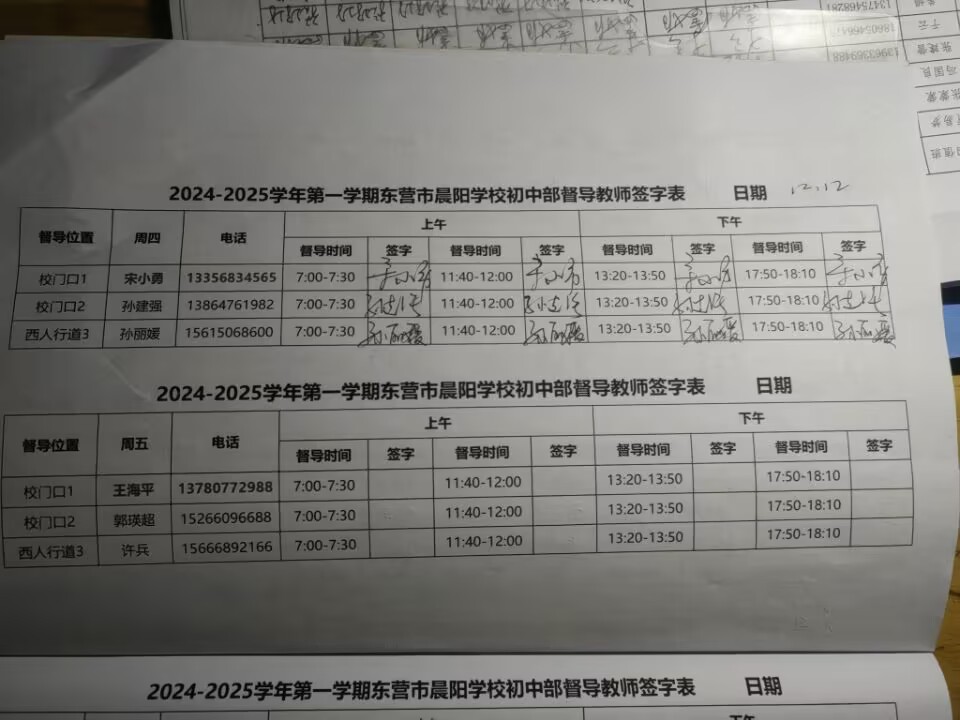 13475468281
1860546647
13963369488
于云
张建营
冯国良
张蒙蒙
2024-2025学年第一学期东营市晨阳学校初中部督导教师签字表 日期 12.12
督导位置 周四 电话 上午 下午
督导时间 签字 督导时间 签字 督导时间 签字 督导时间 签字
校门口1 宋小勇 13356834565 7:00-7:30 宋小勇 11:40-12:00 宋小勇 13:20-13:50 宋小勇 17:50-18:10 宋小勇
校门口2 孙建强 13864761982 7:00-7:30 孙建强 11:40-12:00 孙建强 13:20-13:50 孙建强 17:50-18:10 孙建强
西人行道3 孙丽媛 15615068600 7:00-7:30 孙丽媛 11:40-12:00 孙丽媛 13:20-13:50 孙丽媛 17:50-18:10 孙丽媛
2024-2025学年第一学期东营市晨阳学校初中部督导教师签字表 日期
督导位置 周五 电话 上午 下午
督导时间 签字 督导时间 签字 督导时间 签字 督导时间 签字
校门口1 王海平 13780772988 7:00-7:30 11:40-12:00 13:20-13:50 17:50-18:10
校门口2 郭瑛超 15266096688 7:00-7:30 11:40-12:00 13:20-13:50 17:50-18:10
西人行道3 许兵 15666892166 7:00-7:30 11:40-12:00 13:20-13:50 17:50-18:10
2024-2025学年第一学期东营市晨阳学校初中部督导教师签字表 日期
上午 下午